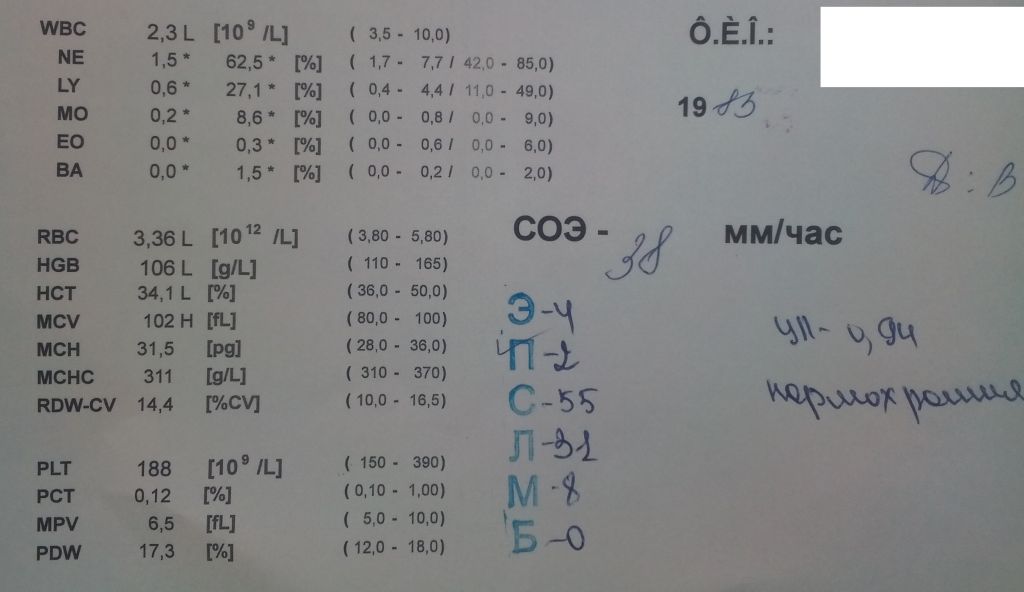 WBC 2,3 L [10⁹ /L] ( 3,5 - 10,0)
NE 1,5 * 62,5 * [%] ( 1,7 - 7,7 / 42,0 - 85,0)
LY 0,6 * 27,1 * [%] ( 0,4 - 4,4 / 11,0 - 49,0)
MO 0,2 * 8,6 * [%] ( 0,0 - 0,8 / 0,0 - 9,0)
EO 0,0 * 0,3 * [%] ( 0,0 - 0,6 / 0,0 - 6,0)
BA 0,0 * 1,5 * [%] ( 0,0 - 0,2 / 0,0 - 2,0)
RBC 3,36 L [10¹² /L] ( 3,80 - 5,80)
HGB 106 L [g/L] ( 110 - 165)
HCT 34,1 L [%] ( 36,0 - 50,0)
MCV 102 H [fL] ( 80,0 - 100)
MCH 31,5 [pg] ( 28,0 - 36,0)
MCHC 311 [g/L] ( 310 - 370)
RDW-CV 14,4 [%CV] ( 10,0 - 16,5)
PLT 188 [10⁹ /L] ( 150 - 390)
PCT 0,12 [%] ( 0,10 - 1,00)
MPV 6,5 [fL] ( 5,0 - 10,0)
PDW 17,3 [%] ( 12,0 - 18,0)
Ô.È.Î.:
1983
СОЭ - 38 мм/час
Э - 4
П - 2
С - 55
Л - 31
М - 8
Б - 0
цп - 0,94
нормохромия